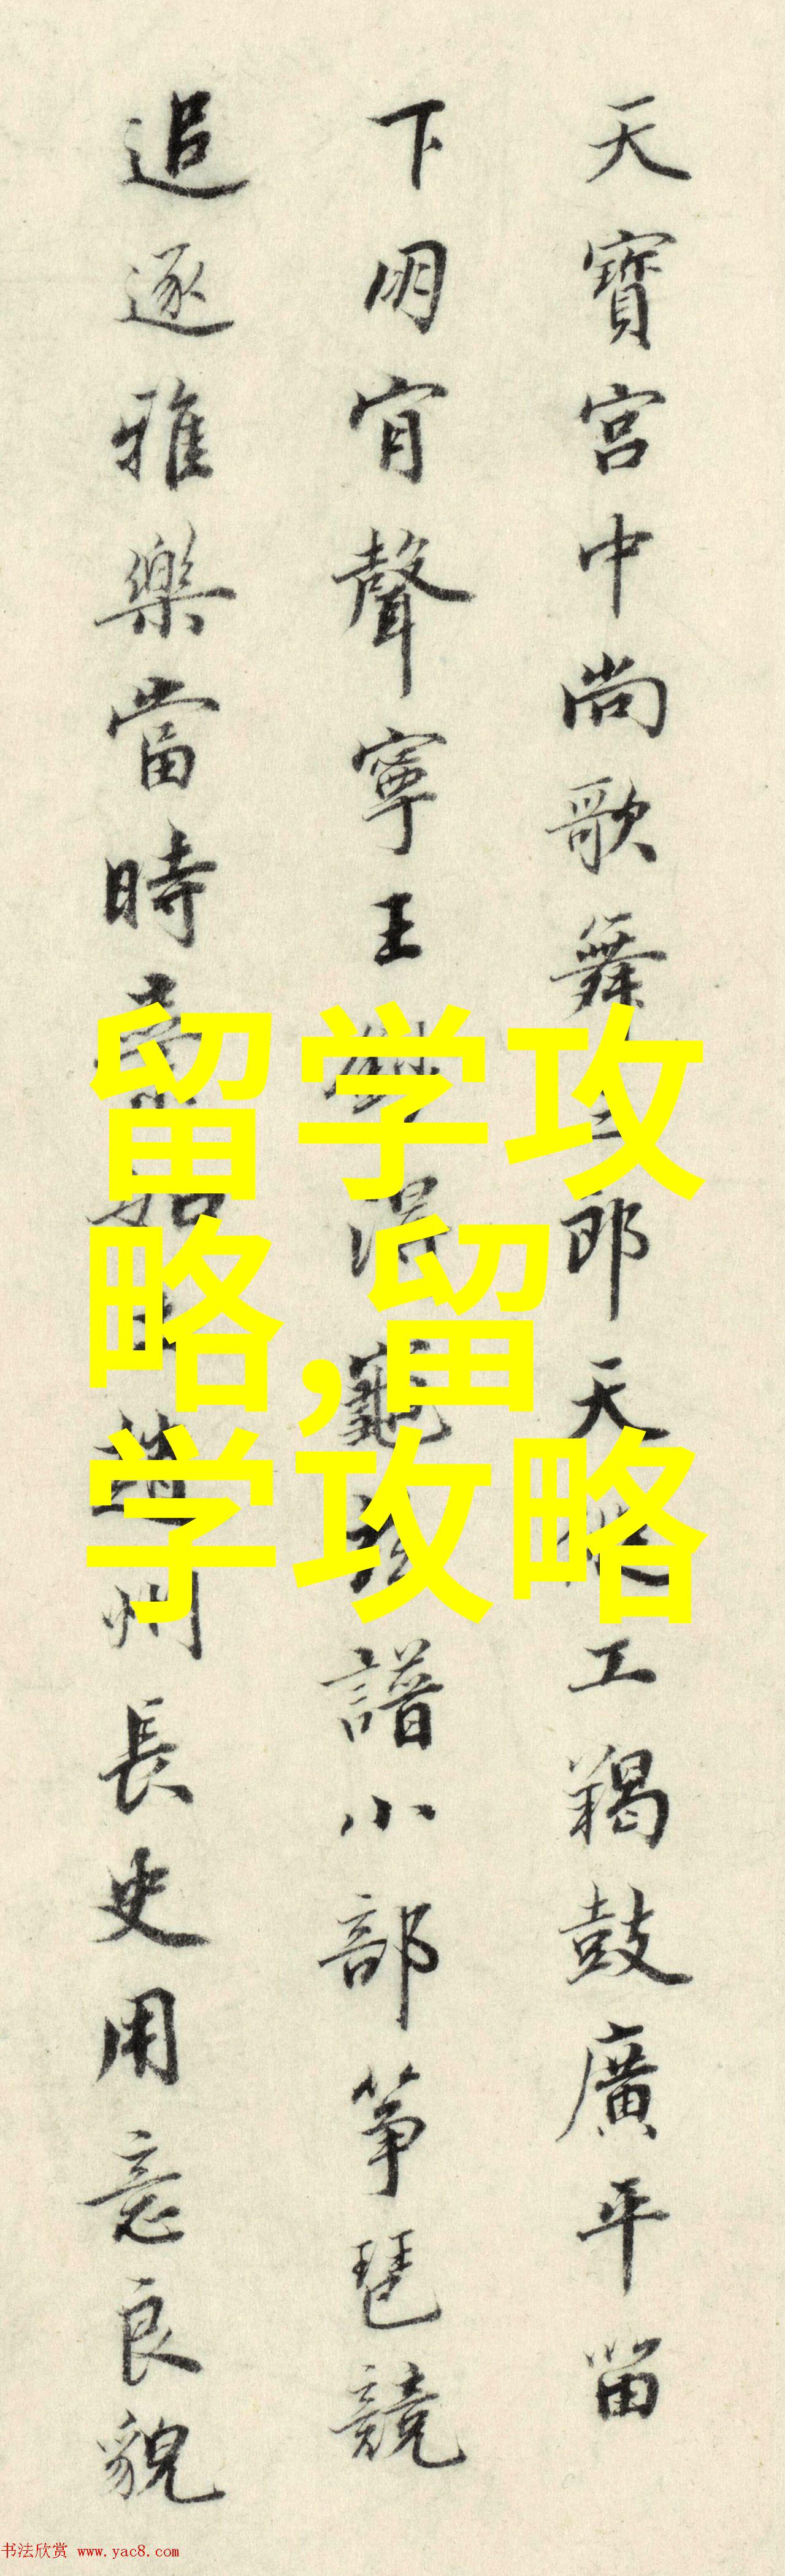 天寶宮中尚歌舞郎天工羯鼓廣平留
下朋肎聲寧王得龜茲譜小部箏琶競
追逐雅樂當時州長史用意良貌
留学攻
略,留
学攻略
书法欣赏 www.yac8.com